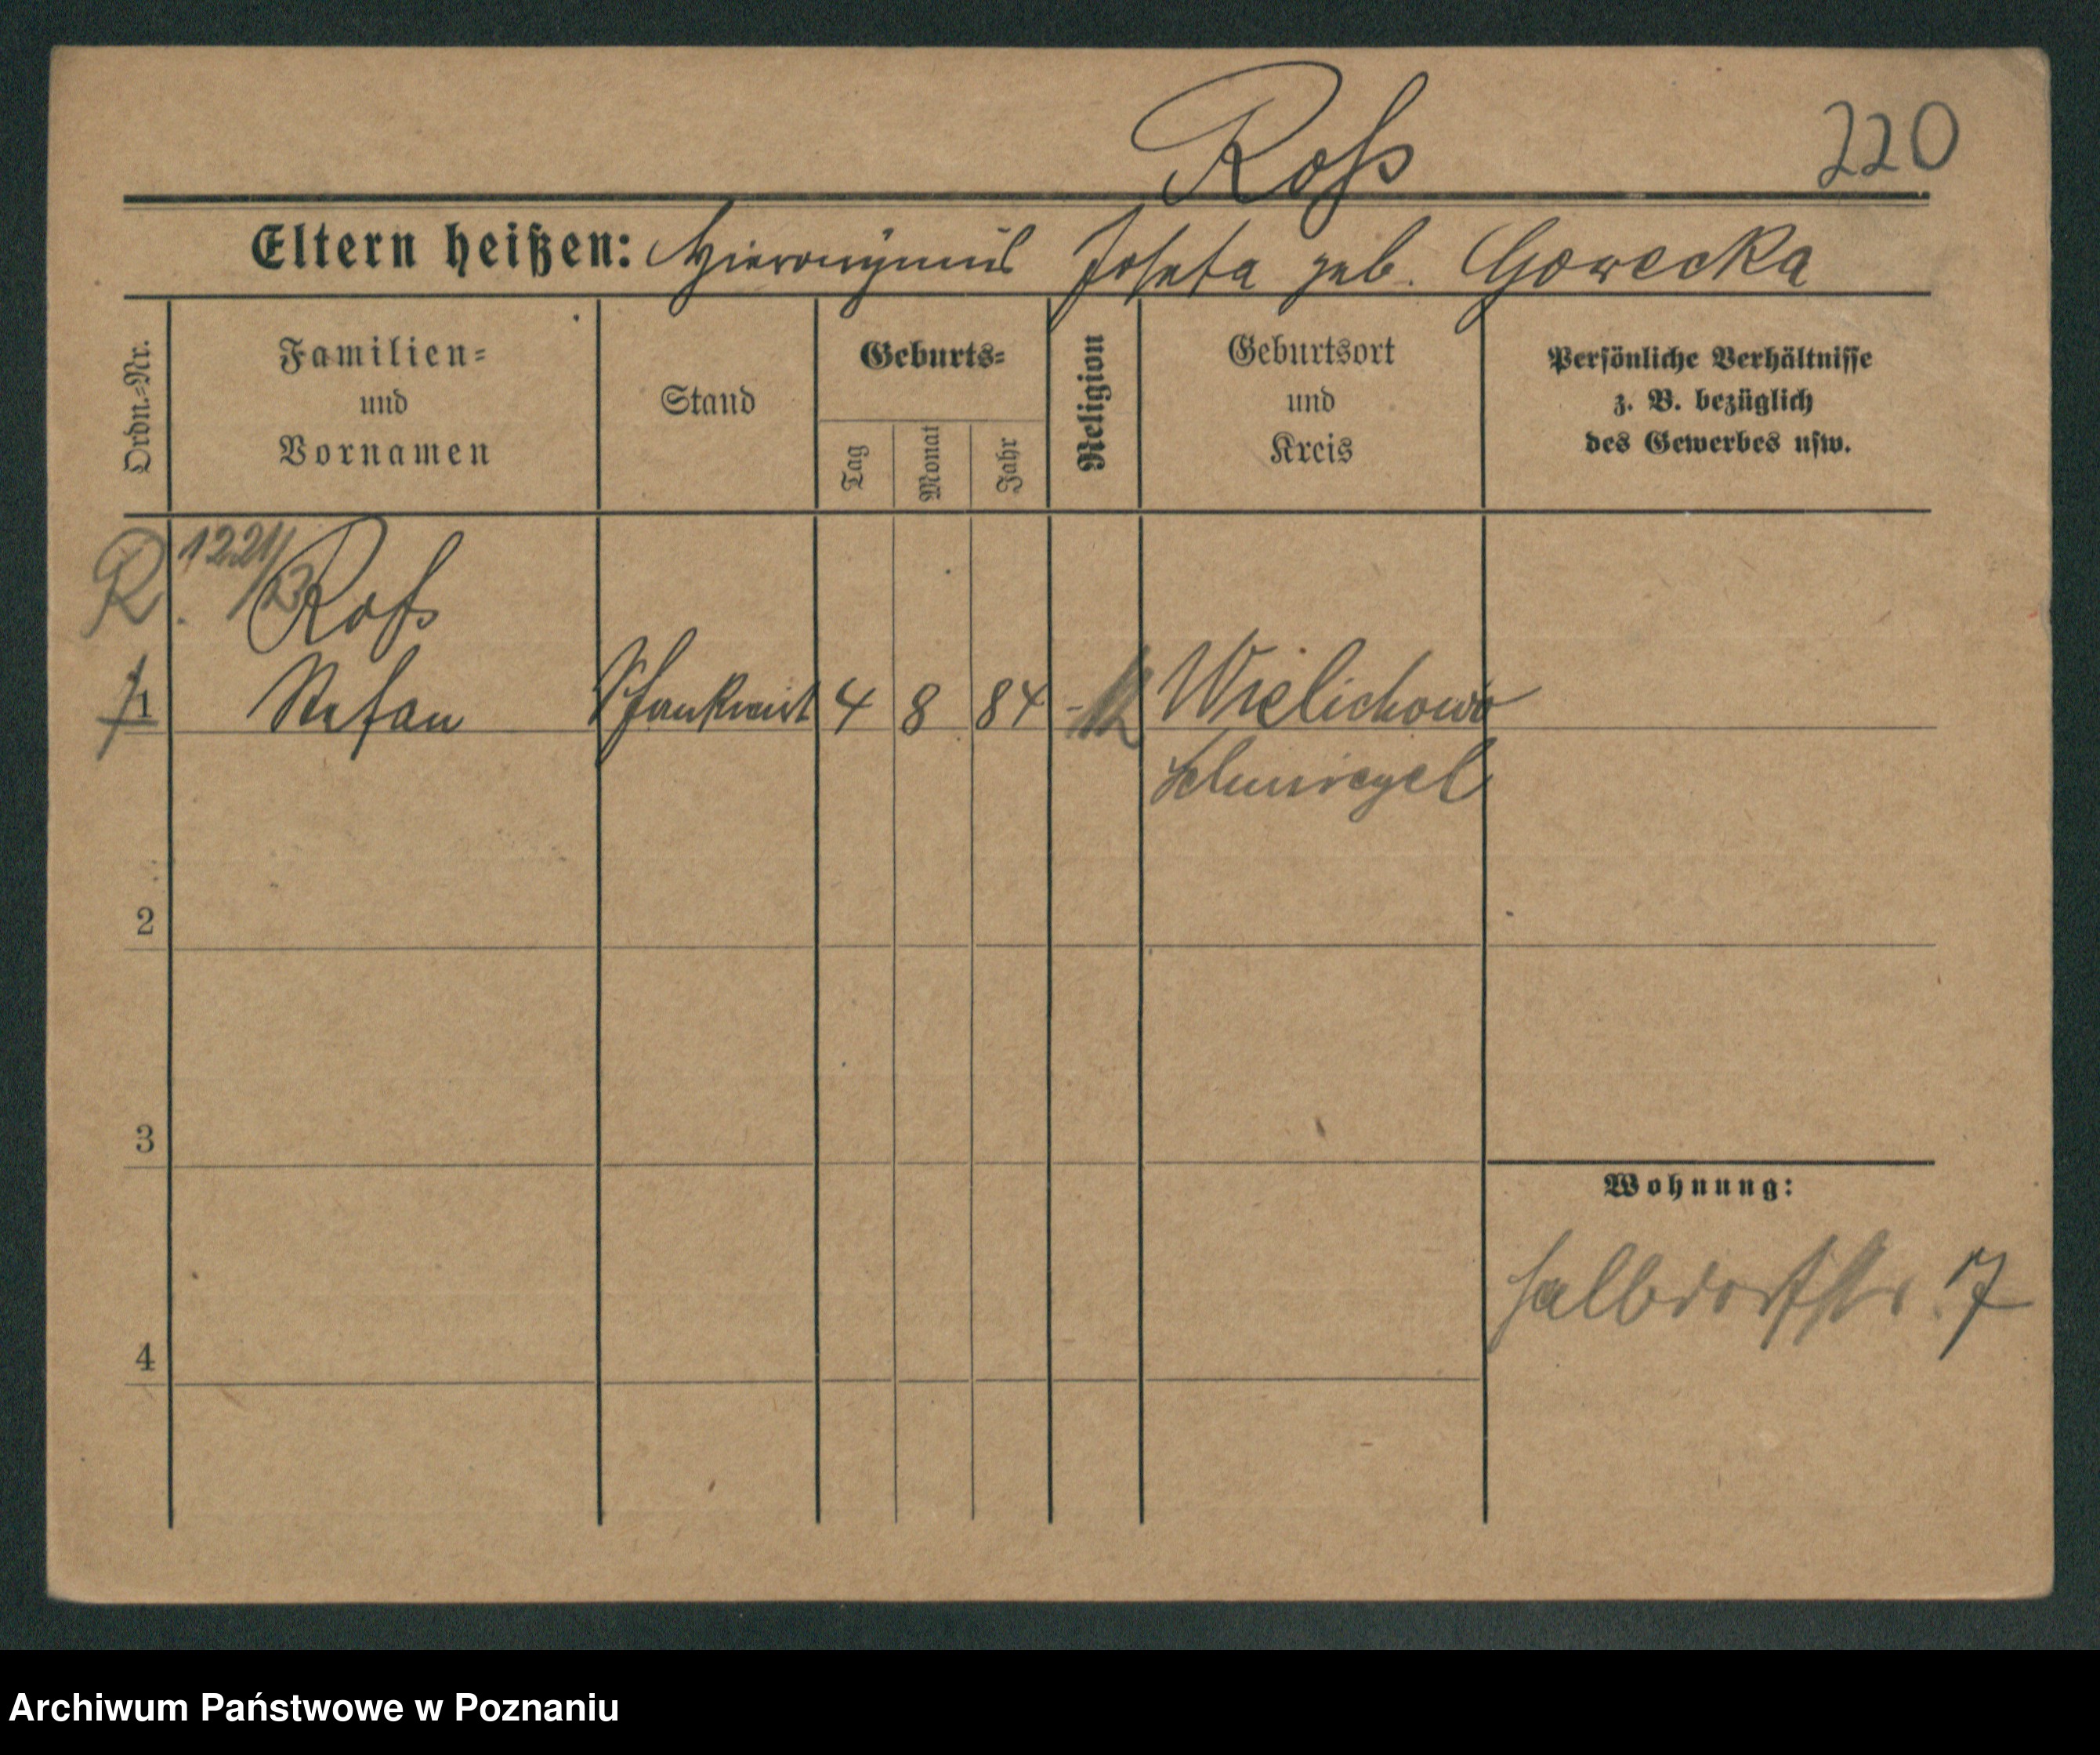 Roß 220
Eltern heißen: Hieronymus Josefa geb. Gorecka
Ordn.-Nr.
Familien-
und
Vornamen
Stand
Geburts-
Tag
Monat
Jahr
Religion
Geburtsort
und
Kreis
Persönliche Verhältnisse
z. B. bezüglich
des Gewerbes usw.
R. 1221/
Roß
1 Stefan Schankwirt 4 8 84 Wielichowo
Schmiegel
2
3
Wohnung:
Halbdorfstr. 17
4
Archiwum Państwowe w Poznaniu